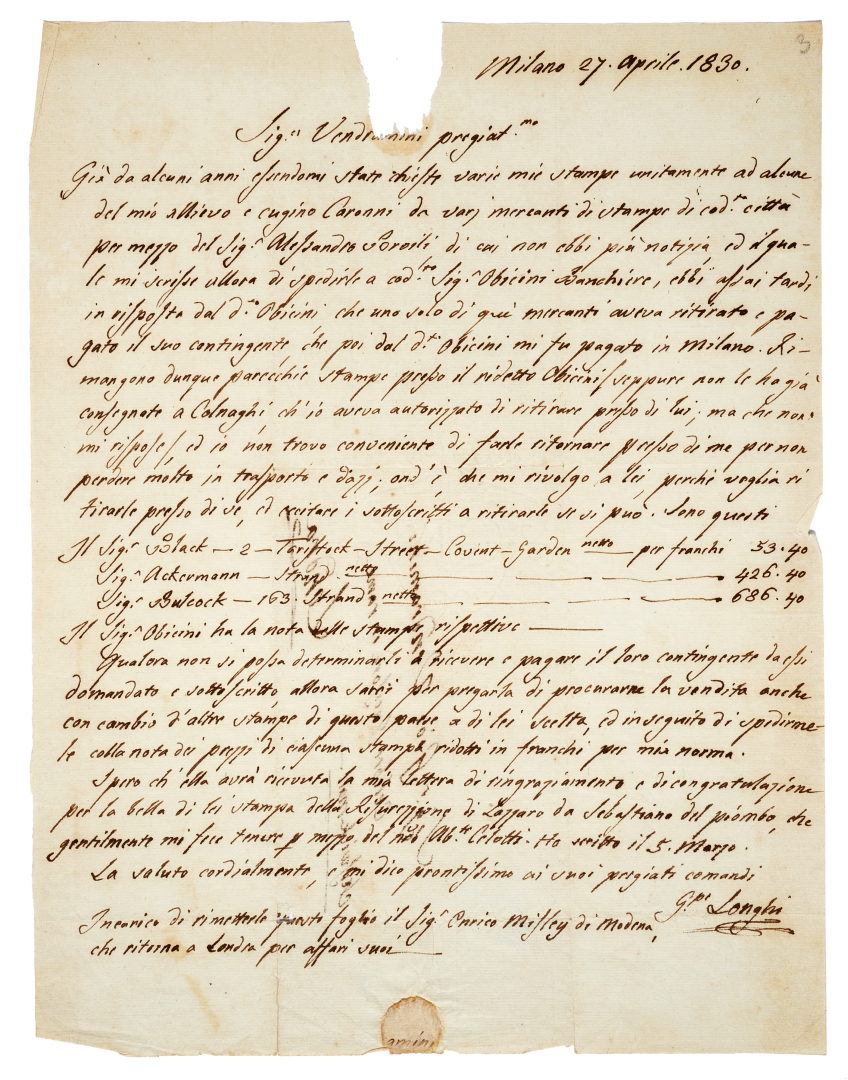 3
Milano 27. Aprile. 1830.
Sig.r Vendramini pregiat.mo
Già da alcuni anni essendomi state chieste varie mie stampe unitamente ad alcune
del mio allievo e cugino Caronni da varj mercanti di stampe di cod.ta città
per mezzo del Sig.r Alessandro di cui non ebbi più notizia, ed il qua-
le mi scrisse allora di spedirle a cod.sto Sig.r Obicini Banchiere, ebbi assai tardi
in risposta dal d.to Obicini, che uno solo di que' mercanti aveva ritirato e pa-
gato il suo contingente, che poi dal d.to Obicini mi fu pagato in Milano. Ri-
mangono dunque parecchie stampe presso il ridetto Obicini (seppure non le ha già
consegnate a Colnaghi, ch'io aveva autorizzato di ritirare presso di lui, ma che non
mi rispose), ed io non trovo conveniente di farle ritornare presso di me per non
perdere molto in trasporto e dazj; ond'è che mi rivolgo a lei, perchè voglia ri
tirarle presso di se, ed eccitare i sottoscritti a ritirarle se si può. Sono questi
Il Sig.r Black — 2 — Tavistock — Street — Covent — Garden netto — per franchi 53.40
Sig.r Ackermann — Strand netto — — — 426.40
Sig.r Bulcock — 163. Strand netto — — — 686.40
Il Sig.r Obicini ha la nota delle stampe rispettive —
Qualora non si possa determinarli a ricevere e pagare il loro contingente da essi
domandato e sottoscritto, allora sarei per pregarla di procurarne la vendita anche
con cambio d'altre stampe di questo paese a di lei scelta, ed in seguito di spedirme-
le colla nota dei prezzi di ciascuna stampa ridotti in franchi per mia norma.
Spero ch'ella avrà ricevuta la mia lettera di ringraziamento e di congratulazione
per la bella di lei stampa della Risurezzione di Lazzaro da Sebastiano del piombo, che
gentilmente mi fece tenere p mezzo del Ab.te Celotti. Ho scritto il 5. Marzo.
La saluto cordialmente, e mi dico prontissimo ai suoi pregiati comandi
G.pe Longhi
Incarico di rimetterle questo foglio il Sig.r Enrico Misley di Modena,
che ritorna a Londra per affari suoi